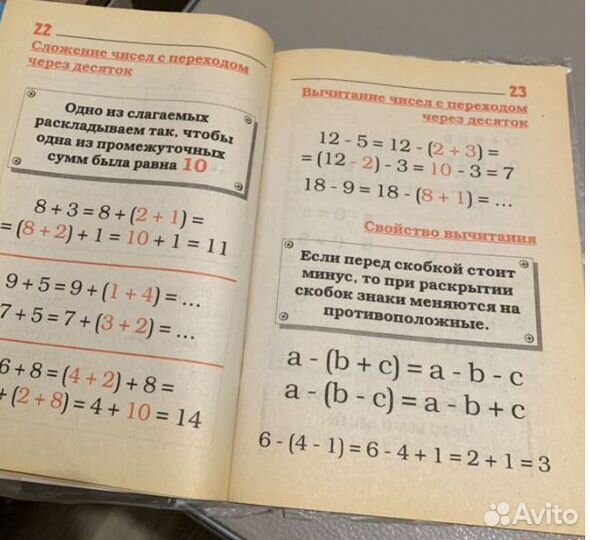 22
Сложение чисел с переходом
через десяток
Одно из слагаемых
раскладываем так, чтобы
одна из промежуточных
сумм была равна 10
8 + 3 = 8 + (2 + 1) =
= (8 + 2) + 1 = 10 + 1 = 11
9 + 5 = 9 + (1 + 4) = ...
7 + 5 = 7 + (3 + 2) = ...
6 + 8 = (4 + 2) + 8 =
+ (2 + 8) = 4 + 10 = 14
23
Вычитание чисел с переходом
через десяток
12 - 5 = 12 - (2 + 3) =
= (12 - 2) - 3 = 10 - 3 = 7
18 - 9 = 18 - (8 + 1) = ...
Свойство вычитания
Если перед скобкой стоит
минус, то при раскрытии
скобок знаки меняются на
противоположные.
a - (b + c) = a - b - c
a - (b - c) = a - b + c
6 - (4 - 1) = 6 - 4 + 1 = 2 + 1 = 3
Avito